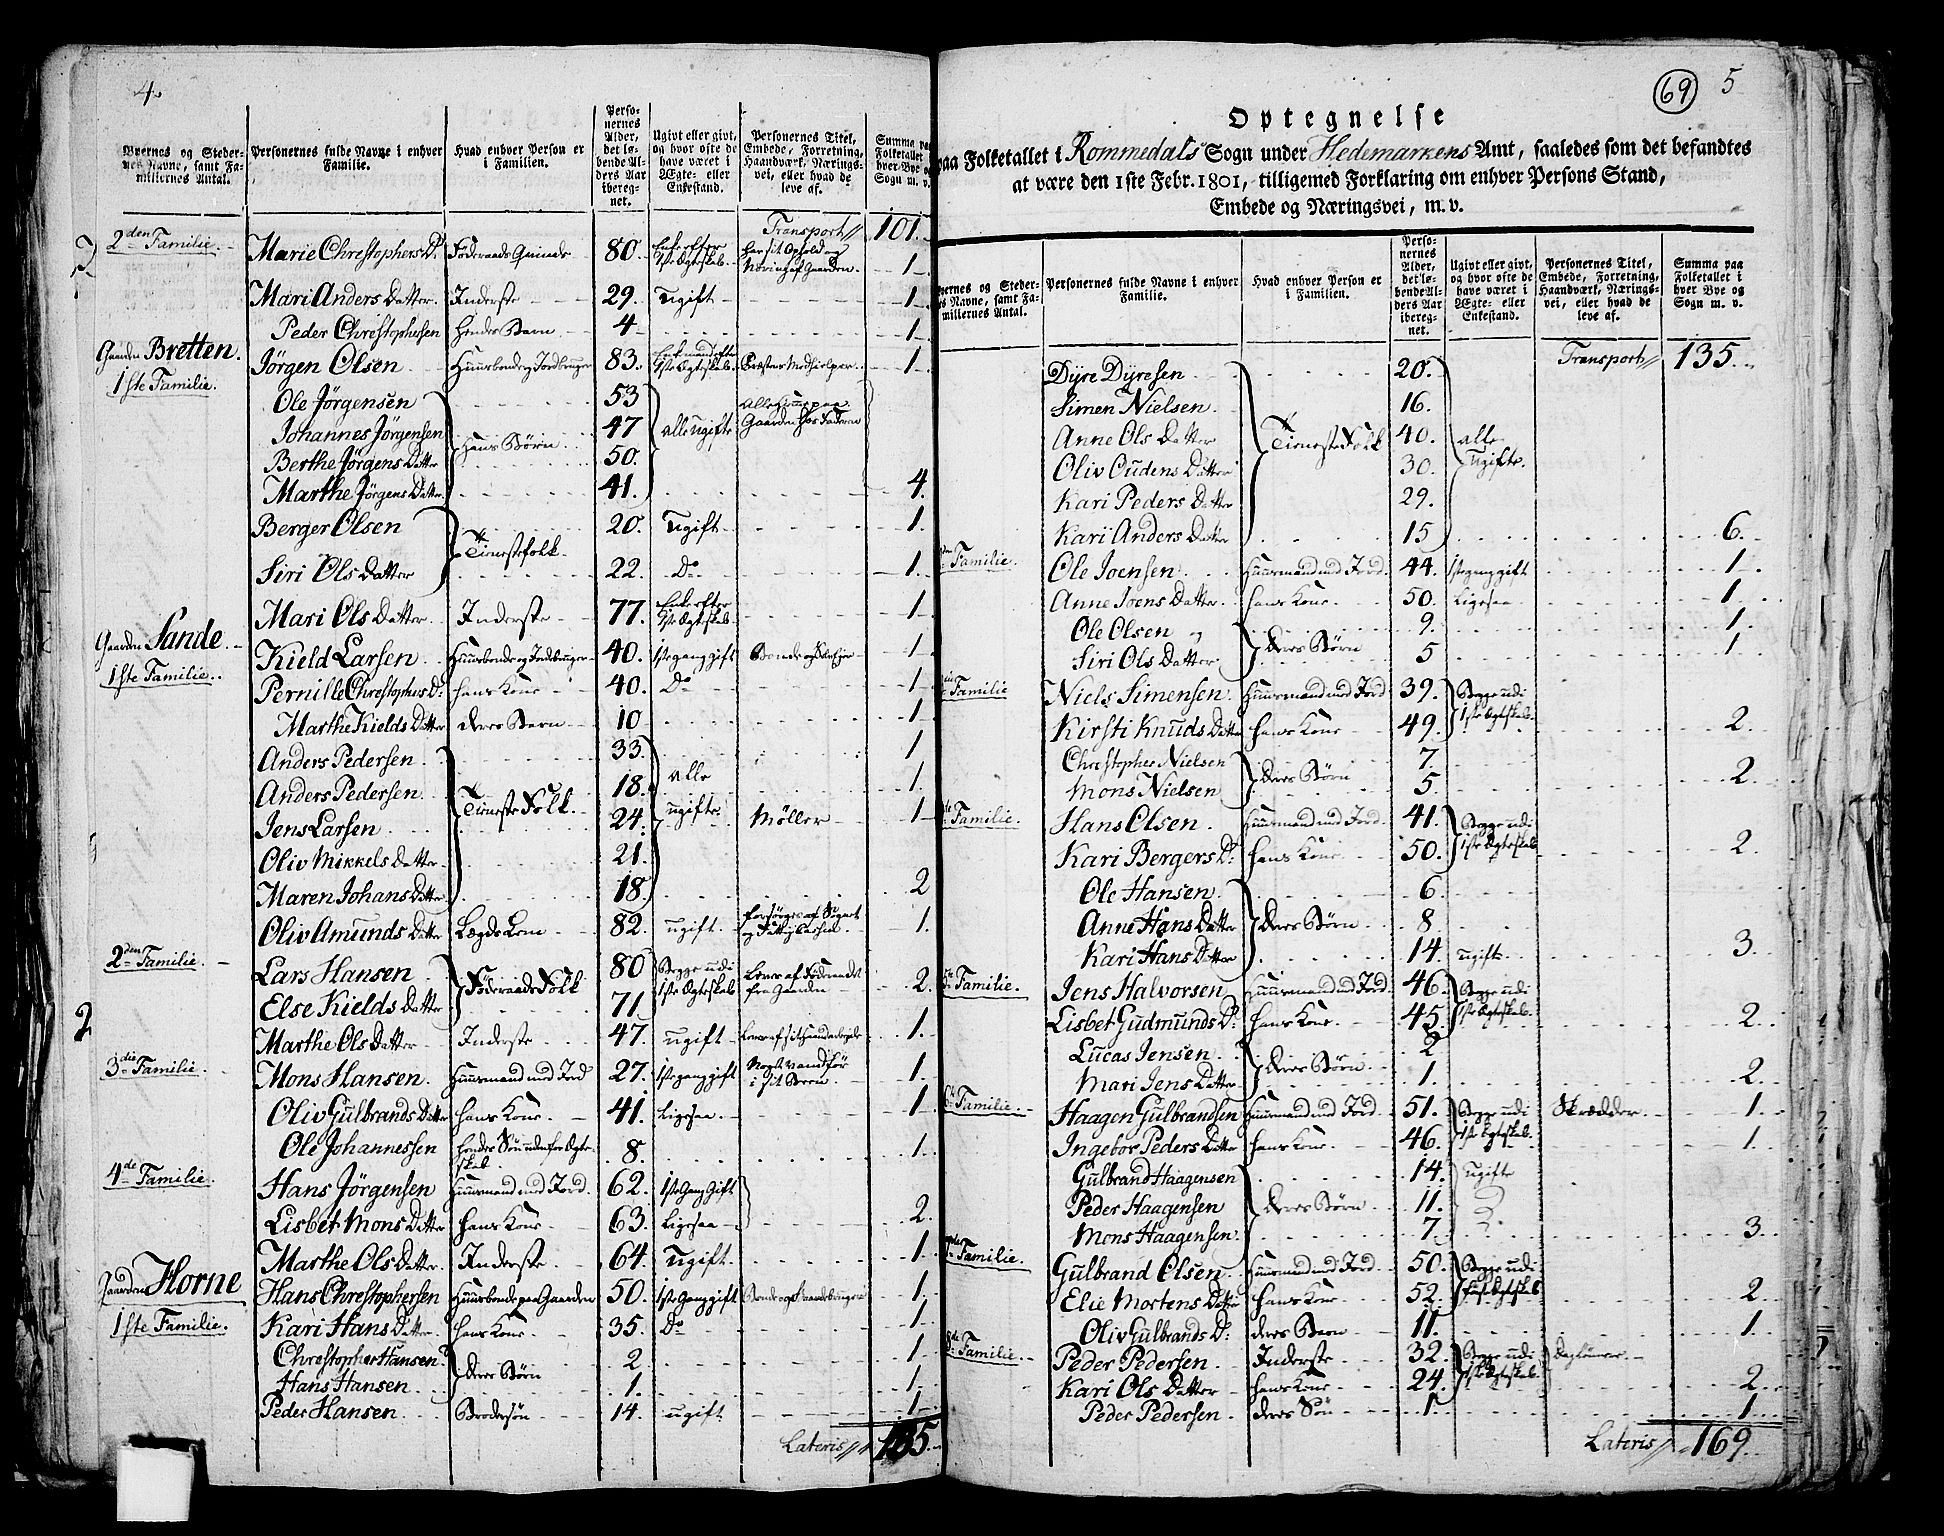 4.
Byernes og Steder-
nes Navne, samt Fa-
miliernes Antal.
Personernes fulde Navne i enhver
Familie.
Hvad enhver Person er
i Familien.
Perso-
nernes
Alder,
det lø-
bende Al-
ders Aar
ibereg-
net.
Ugivt eller givt,
og hvor ofte de
have været i
Ægte- eller
Enkestand.
Personernes Titel,
Embede, Forretning,
Haandværk, Nærings-
vei, eller hvad de
leve af.
Summa paa
Folketallet
hver Bye og
Sogn m. v.
Transport 101.
2den Familie. Marie Christophers D: Föderaads Quinde 80. Enke efter 1ste Ægteskab. har sit Ophold og Næring af Gaarden. 1
Mari Anders Datter. Inderste 29. Ugift 1
Peder Christophersen hendes Barn 4 1
Gaarden Bretten.
1ste Familie. Jörgen Olsen Huusbonde og Jordbruger 83. Enkemand efter 1ste Ægteskab. Præstens Medhielper 1
Ole Jörgensen 53
Johannes Jörgensen hans Börn 47 alle ugifte Alle hiemme paa Gaarden hos Faderen
Berthe Jörgens Datter 50.
Marthe Jörgens Datter 41. 4.
Berger Olsen Tienestefolk. 20. Ugift 1.
Siri Ols Datter 22. Do 1.
Mari Ols Datter Inderste 77. Enke efter 1ste Ægteskab. 1
Gaarden Sande.
1ste Familie. Kield Larsen Huusbonde og Jordbruger 40. 1ste gang gift Bonde og Selvejer 1
Pernille Christophers D: hans Kone 40. Do 1
Marthe Kields Datter deres Barn 10 1
Anders Pedersen 33. 1
Anders Pedersen Tieneste Folk. 18. alle 1
Jens Larsen 24. ugifte. Möller 1
Oliv Mikkels Datter 21.
Maren Johans Datter 18. 2
Oliv Amunds Datter Lægds Lem 82. ugift. 1.
2den Familie. Lars Hansen Föderaads Folk 80 Begge udi 1ste Ægteskab Lever af Föderaadet fra Gaarden
Else Kields Datter 71 2.
Marthe Ols Datter Inderste 47. ugift Lever af sit haandarbejde 1.
3die Familie. Mons Hansen. Huusmand med Jord 27. 1ste gang gift Noget vanfør i sit Been 1.
Oliv Gulbrands Datter hans Kone 41. Ligesaa 1
Ole Johannessen hendes Sön uden for Ægteskab. 8. 1.
4de Familie. Hans Jörgensen Huusmand med Jord. 62. 1ste Gang Gift
Lisbet Mons Datter hans Kone 63. Ligesaa 2.
Marthe Ols Datter. Inderste 64. Ugift. 1.
Gaarden Horne
1ste Familie. Hans Christophersen Huusbonde paa Gaarden 50. 1ste Gang gift 1.
Kari Hans Datter. hans Kone 35. Do 1
Christopher Hansen deres Börn 2 1
Hans Hansen. 1. 1
Peder Hansen Brodersön 14. ugift 1
Lateris 135.
69 5
Optegnelse
paa Folketallet i Rommedals Sogn under Hedemarkens Amt, saaledes som det befandtes
at være den 1ste Febr. 1801, tilligemed Forklaring om enhver Persons Stand,
Embede og Næringsvei, m. v.
Byernes og Steder-
nes Navne, samt Fa-
miliernes Antal.
Personernes fulde Navne i enhver
Familie.
Hvad enhver Person er
i Familien.
Perso-
nernes
Alder,
det lø-
bende Al-
ders Aar
ibereg-
net.
Ugivt eller givt,
og hvor ofte de
have været i
Ægte- eller
Enkestand.
Personernes Titel,
Embede, Forretning,
Haandværk, Nærings-
vei, eller hvad de
leve af.
Summa paa
Folketallet i
hver Bye og
Sogn m. v.
Transport 135.
Dyre Dyresen 20.
Simen Nielsen 16.
Anne Ols Datter Tieneste Folk 40. alle
Oliv Oudens Datter 30. Ugifte.
Kari Peders Datter 29.
Kari Anders Datter 15 6.
Familie. Ole Joensen Huusmand med Jord. 44. 1ste gang gift 1.
Anne Joens Datter hans Kone 50. Ligesaa 1.
Ole Olsen deres Börn 9. 1.
Siri Ols Datter. 5 1
Familie Niels Simensen. Huusmand med Jord 39. Begge udi 1ste Ægteskab.
Kirsti Knuds Datter hans Kone 49. 2.
Christopher Nielsen deres Börn 7.
Mons Nielsen 5 2.
Familie. Hans Olsen Huusmand med Jord. 41. Begge udi 1ste Ægteskab
Kari Bergers D: hans Kone 50. 2.
Ole Hansen 6.
Anne Hans Datter deres Börn 8
Kari Hans Datter 14. ugift 3.
5te Familie. Jens Halvorsen Huusmand med Jord. 46. Begge udi 1ste Ægteskab
Lisbet Gudmunds D: hans Kone 45. 2.
Lucas Jensen deres Börn 2
Mari Jens Datter 1. 2.
6te Familie. Haagen Gulbrandsen Huusmand med Jord 51. Begge udi 1ste Ægteskab. Skrædder 1.
Ingebor Peders Datter hans Kone 46. 1.
Gulbrand Haagensen 14. ugifte
Peder Haagensen deres Börn 11.
Mons Haagensen 7. 3
Familie. Gulbrand Olsen Huusmand med Jord 50. Begge udi
Elie Mortens Datter hans Kone 52. 2.
Oliv Gulbrands D: deres Barn 11. 1.
8de Familie. Peder Pedersen Inderste 32. Begge udi 1ste Ægteskab Daglönner
Kari Ols Datter hans Kone 24. 2.
Peder Pedersen deres Sön 1. 1.
Lateris 169.